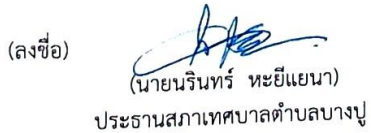 (ลงชื่อ)
(นายนรินทร์ หะยีแยนา)
ประธานสภาเทศบาลตำบลบางปู